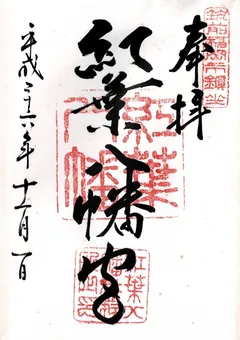 奉拝
紅葉八幡宮
平成二十六年十一月一日
紅葉
八幡